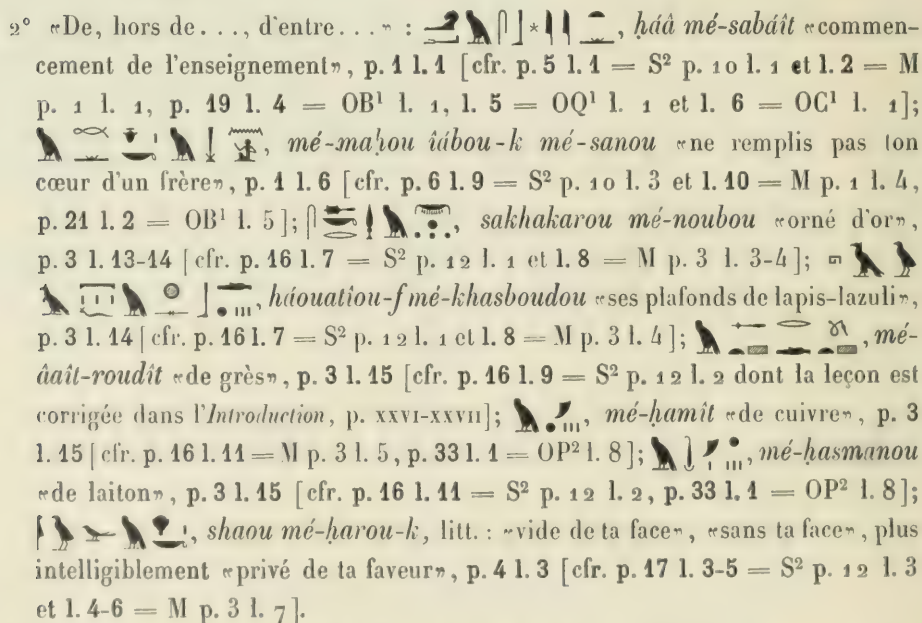 2° «De, hors de..., d'entre...» : , ḥáâ mé-sabáît «commen-
cement de l'enseignement», p. 1 l. 1 [cfr. p. 5 l. 1 = S² p. 10 l. 1 et l. 2 = M
p. 1 l. 1, p. 19 l. 4 = OB¹ l. 1, l. 5 = OQ¹ l. 1 et l. 6 = OC¹ l. 1];
, mé-maḥou îábou-k mé-sanou «ne remplis pas ton
cœur d'un frère», p. 1 l. 6 [cfr. p. 6 l. 9 = S² p. 10 l. 3 et l. 10 = M p. 1 l. 4,
p. 21 l. 2 = OB¹ l. 5]; , sakhakarou mé-noubou «orné d'or»,
p. 3 l. 13-14 [cfr. p. 16 l. 7 = S² p. 12 l. 1 et l. 8 = M p. 3 l. 3-4];
, háouatiou-f mé-khasboudou «ses plafonds de lapis-lazuli»,
p. 3 l. 14 [cfr. p. 16 l. 7 = S² p. 12 l. 1 et l. 8 = M p. 3 l. 4]; , mé-
âaît-roudît «de grès», p. 3 l. 15 [cfr. p. 16 l. 9 = S² p. 12 l. 2 dont la leçon est
corrigée dans l'Introduction, p. XXVI-XXVII]; , mé-ḥamît «de cuivre», p. 3
l. 15 [cfr. p. 16 l. 11 = M p. 3 l. 5, p. 33 l. 1 = OP² l. 8]; , mé-ḥasmanou
«de laiton», p. 3 l. 15 [cfr. p. 16 l. 11 = S² p. 12 l. 2, p. 33 l. 1 = OP² l. 8];
, shaou mé-ḥarou-k, litt. : «vide de ta face», «sans ta face», plus
intelligiblement «privé de ta faveur», p. 4 l. 3 [cfr. p. 17 l. 3-5 = S² p. 12 l. 3
et l. 4-6 = M p. 3 l. 7].